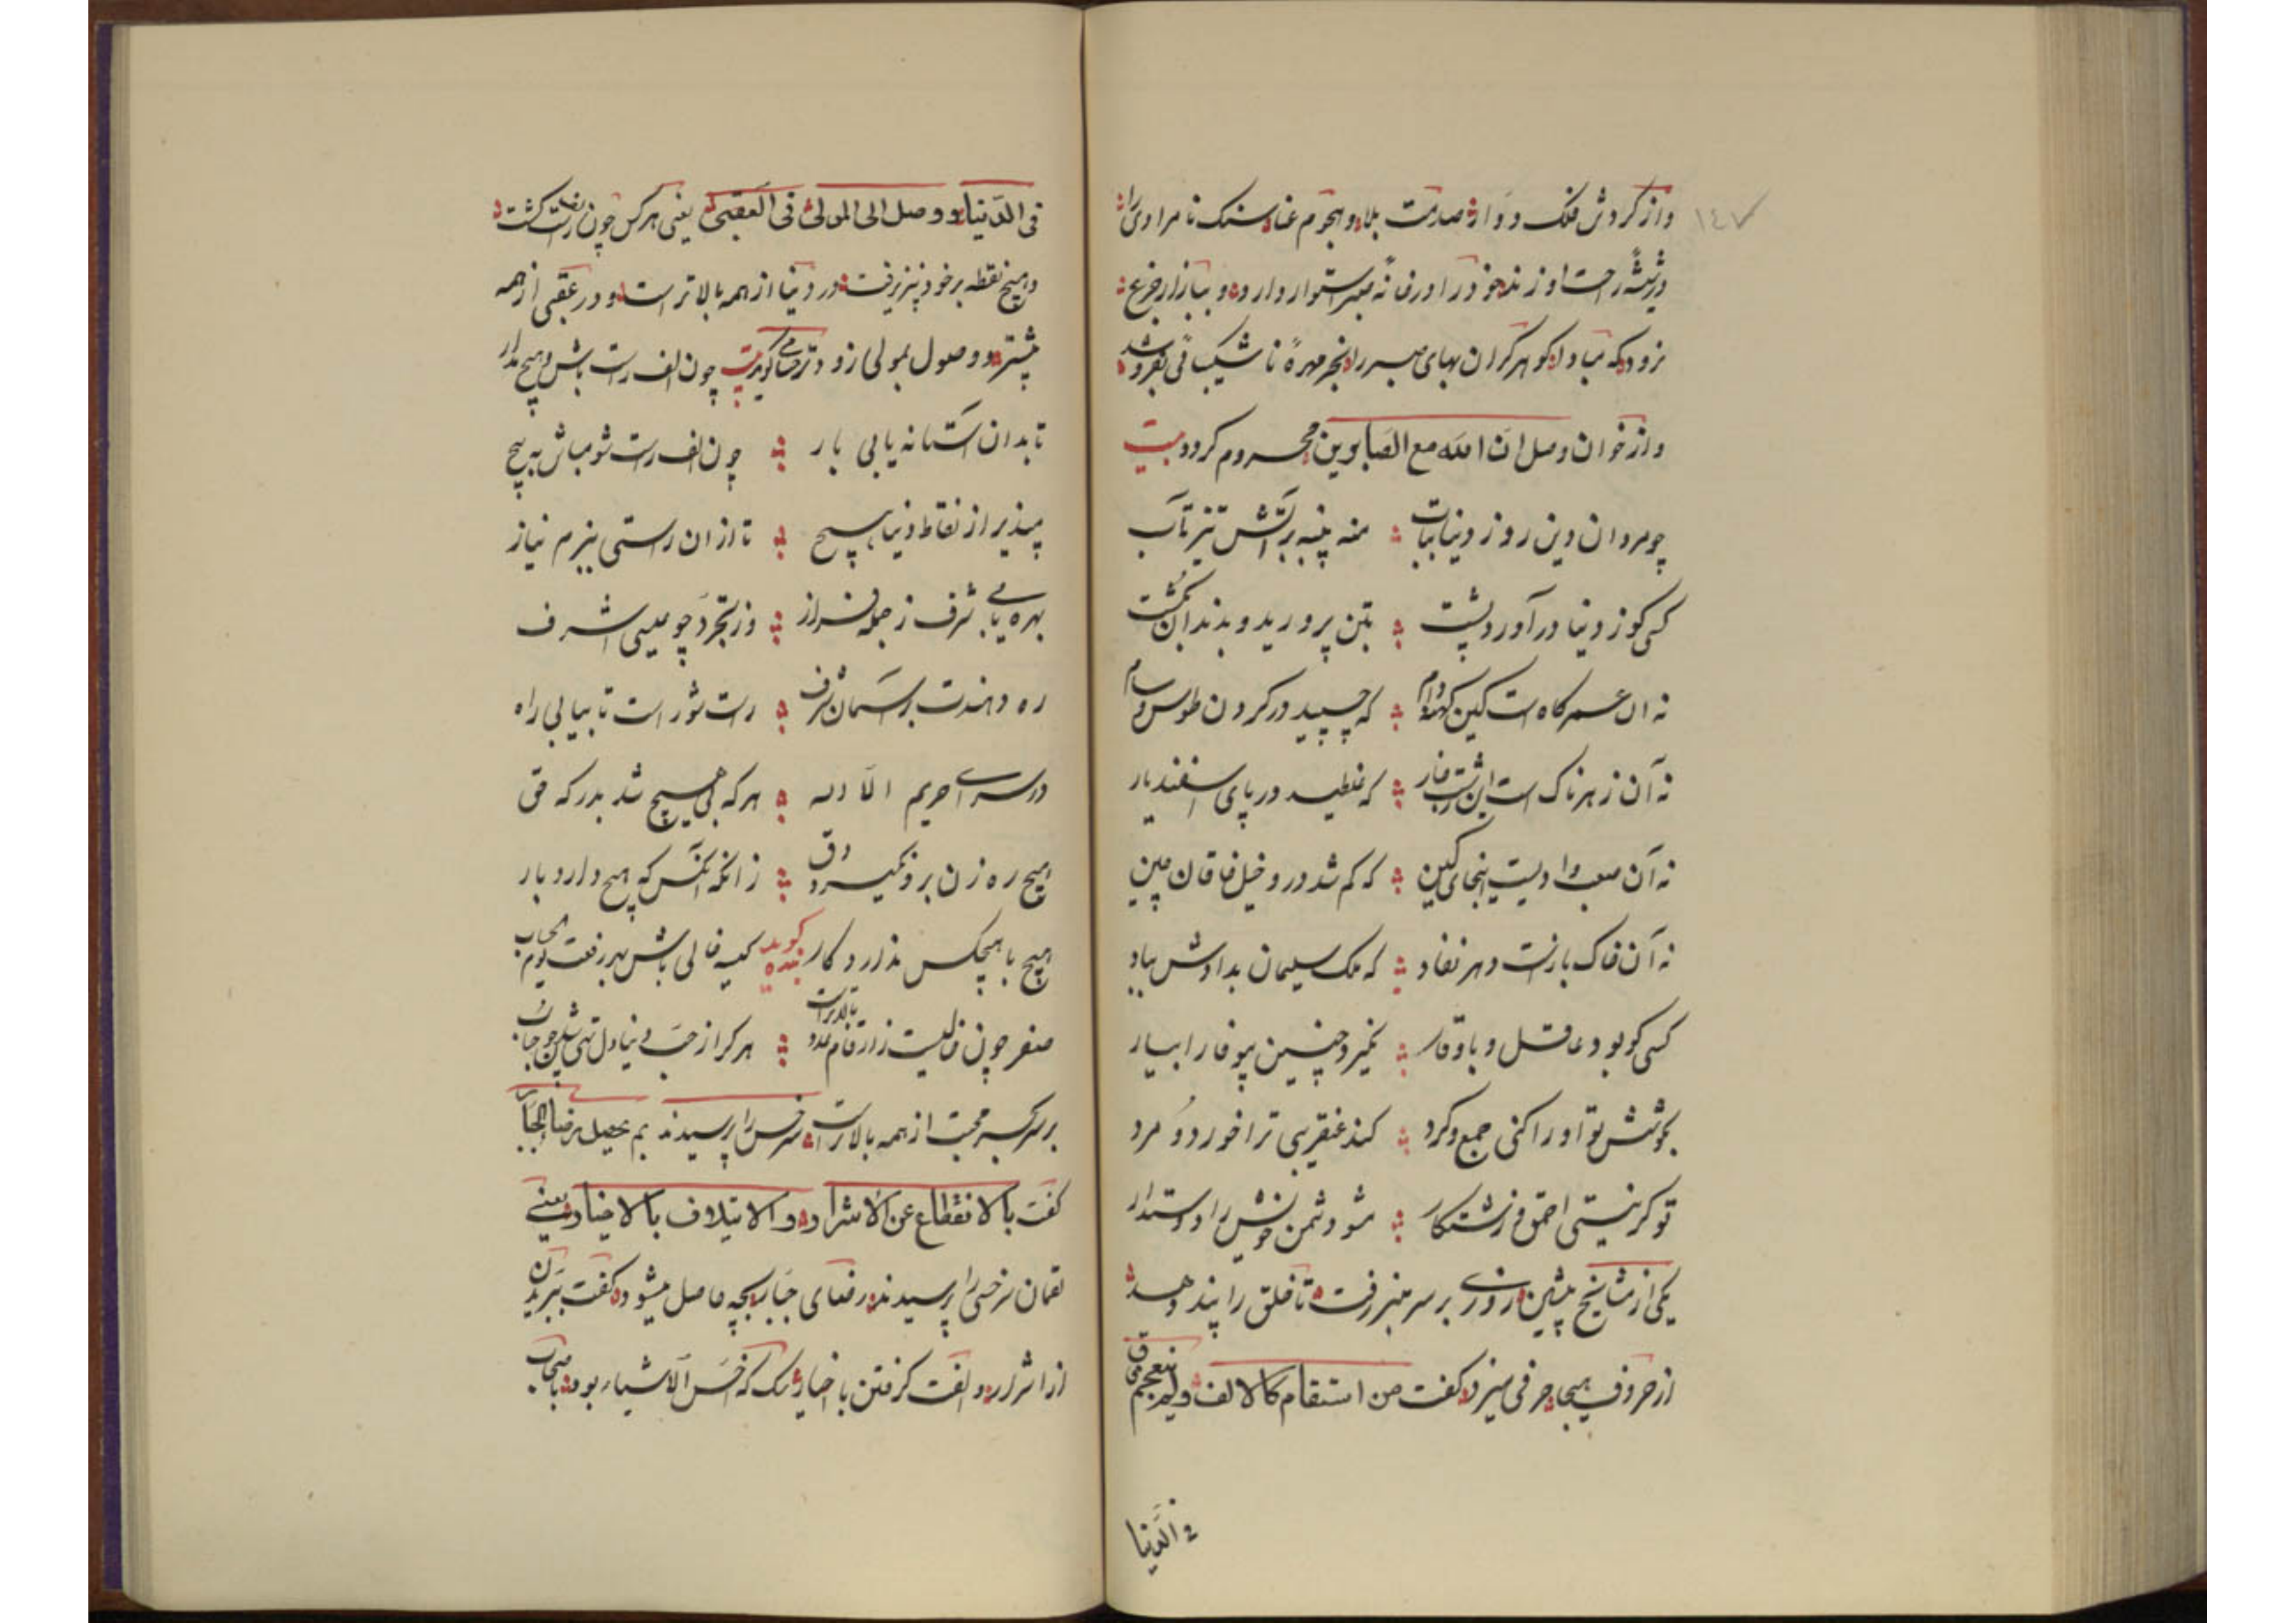 ١٤٧
واز گردش فلک دوار و صدمت بلا و هجوم عنا و سنک نامرادی را
در شیشه راحت او زند خود را در خانه صبر استوار دارد و ببازار جزع
نرود که مبادا کوهر گران بهای صبر را بخر مهرهٔ ناشیکبائی بفروشد
واز خوان وصل ان الله مع الصابرین محروم گردد بیت
چو مردان دین روز دنیا بتاب منه پنبه بر آتش تیز تاب
کسی کو ز دنیا در آورد پشت بتن پرورید و بدندان بکشت
نه ان عسر کاه است کین کهنه دام که چسپید در کردن طوس و سام
نه آن زهرناک است این زشت مار که غلطید در پای اسفندیار
نه آن صعب وادیست اینجای کین که کم شد درو خیل خاقان چین
نه آن خاک بازست دهر نفاد که ملک سلیمان بدادش بباد
کسی کو بود عاقل و باوقار نگیرد چنین بیوفا را بیار
بکوشش تو او را کنی جمع و کرد کند عنقریبی ترا خورد و مرد
تو کر نیستی احمق و زشتکار مشو دشمن خویش را دوستدار
یکی از مشایخ پیشین روزی بر سر منبر رفت تا خلق را پند دهد
از حروف هجا حرفی میزد گفت من استقام کالالف ولم ینعجم فاق
فی الدنیا
فی الدنیا و وصل الی المولی فی العقبی یعنی هر کس چون الف راست کشت
و هیچ نقطه بر خود نپذیرفت در دنیا از همه بالاتر است و در عقبی از همه
پیشتر و وصول بمولی زودتر جامی گوید بیت چون الف راست باش و هیچ مدار
تا بدان آستانه یابی بار چون الف راست شو مباش به پیچ
مپذیر از نقاط دنیا هیچ تا از ان راستی ببزم نیاز
بهره یابی شرف ز جمله فراز وز تجرد چو عیسی اشرف
ره دهندت بر آسمان شرف راست شو راست تا بیابی راه
در سرای حریم الا الله هر که بی هیچ شد بدرکه حق
هیچ ره زن برو نگیرد دق زانکه آنکس که هیچ دارد بار
هیچ با هیچکس ندارد کار بنده گوید کیسه خالی باش بهر رفعت یوم الحساب
صفر چون خالیست ز ارقام عدد بالاتر است هر کرا از حب دنیا دل تهی شد
بر سر کسب محبت از همه بالاتر است سرخسی را پرسیدند بم یحصل رضاء الجبار
گفت بالانقطاع عن الاشرار والایتلاف بالاخیار یعنی
لقمان سرخسی را پرسیدند رضای جبار بچه حاصل میشود گفت ببریدن
از اشرار و الفت گرفتن باخیار سک که اخس الاشیاء بود باصحاب